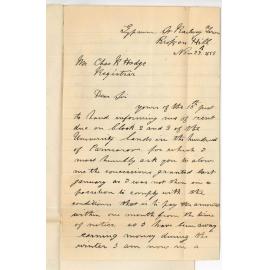 Mr Chas R Hodge
Registrar
Dear Sir
yours of the 15th
to hand informing me of rent
due on Block 2 and 3 of the
University lands in the hundred
of for which I
most humbly ask you to allow
me the concessions granted last
January as I was not then in a
position to comply with the
conditions that is to pay the
within one month from the time
of notice as I have been away
earning money during the
winter I am now in a